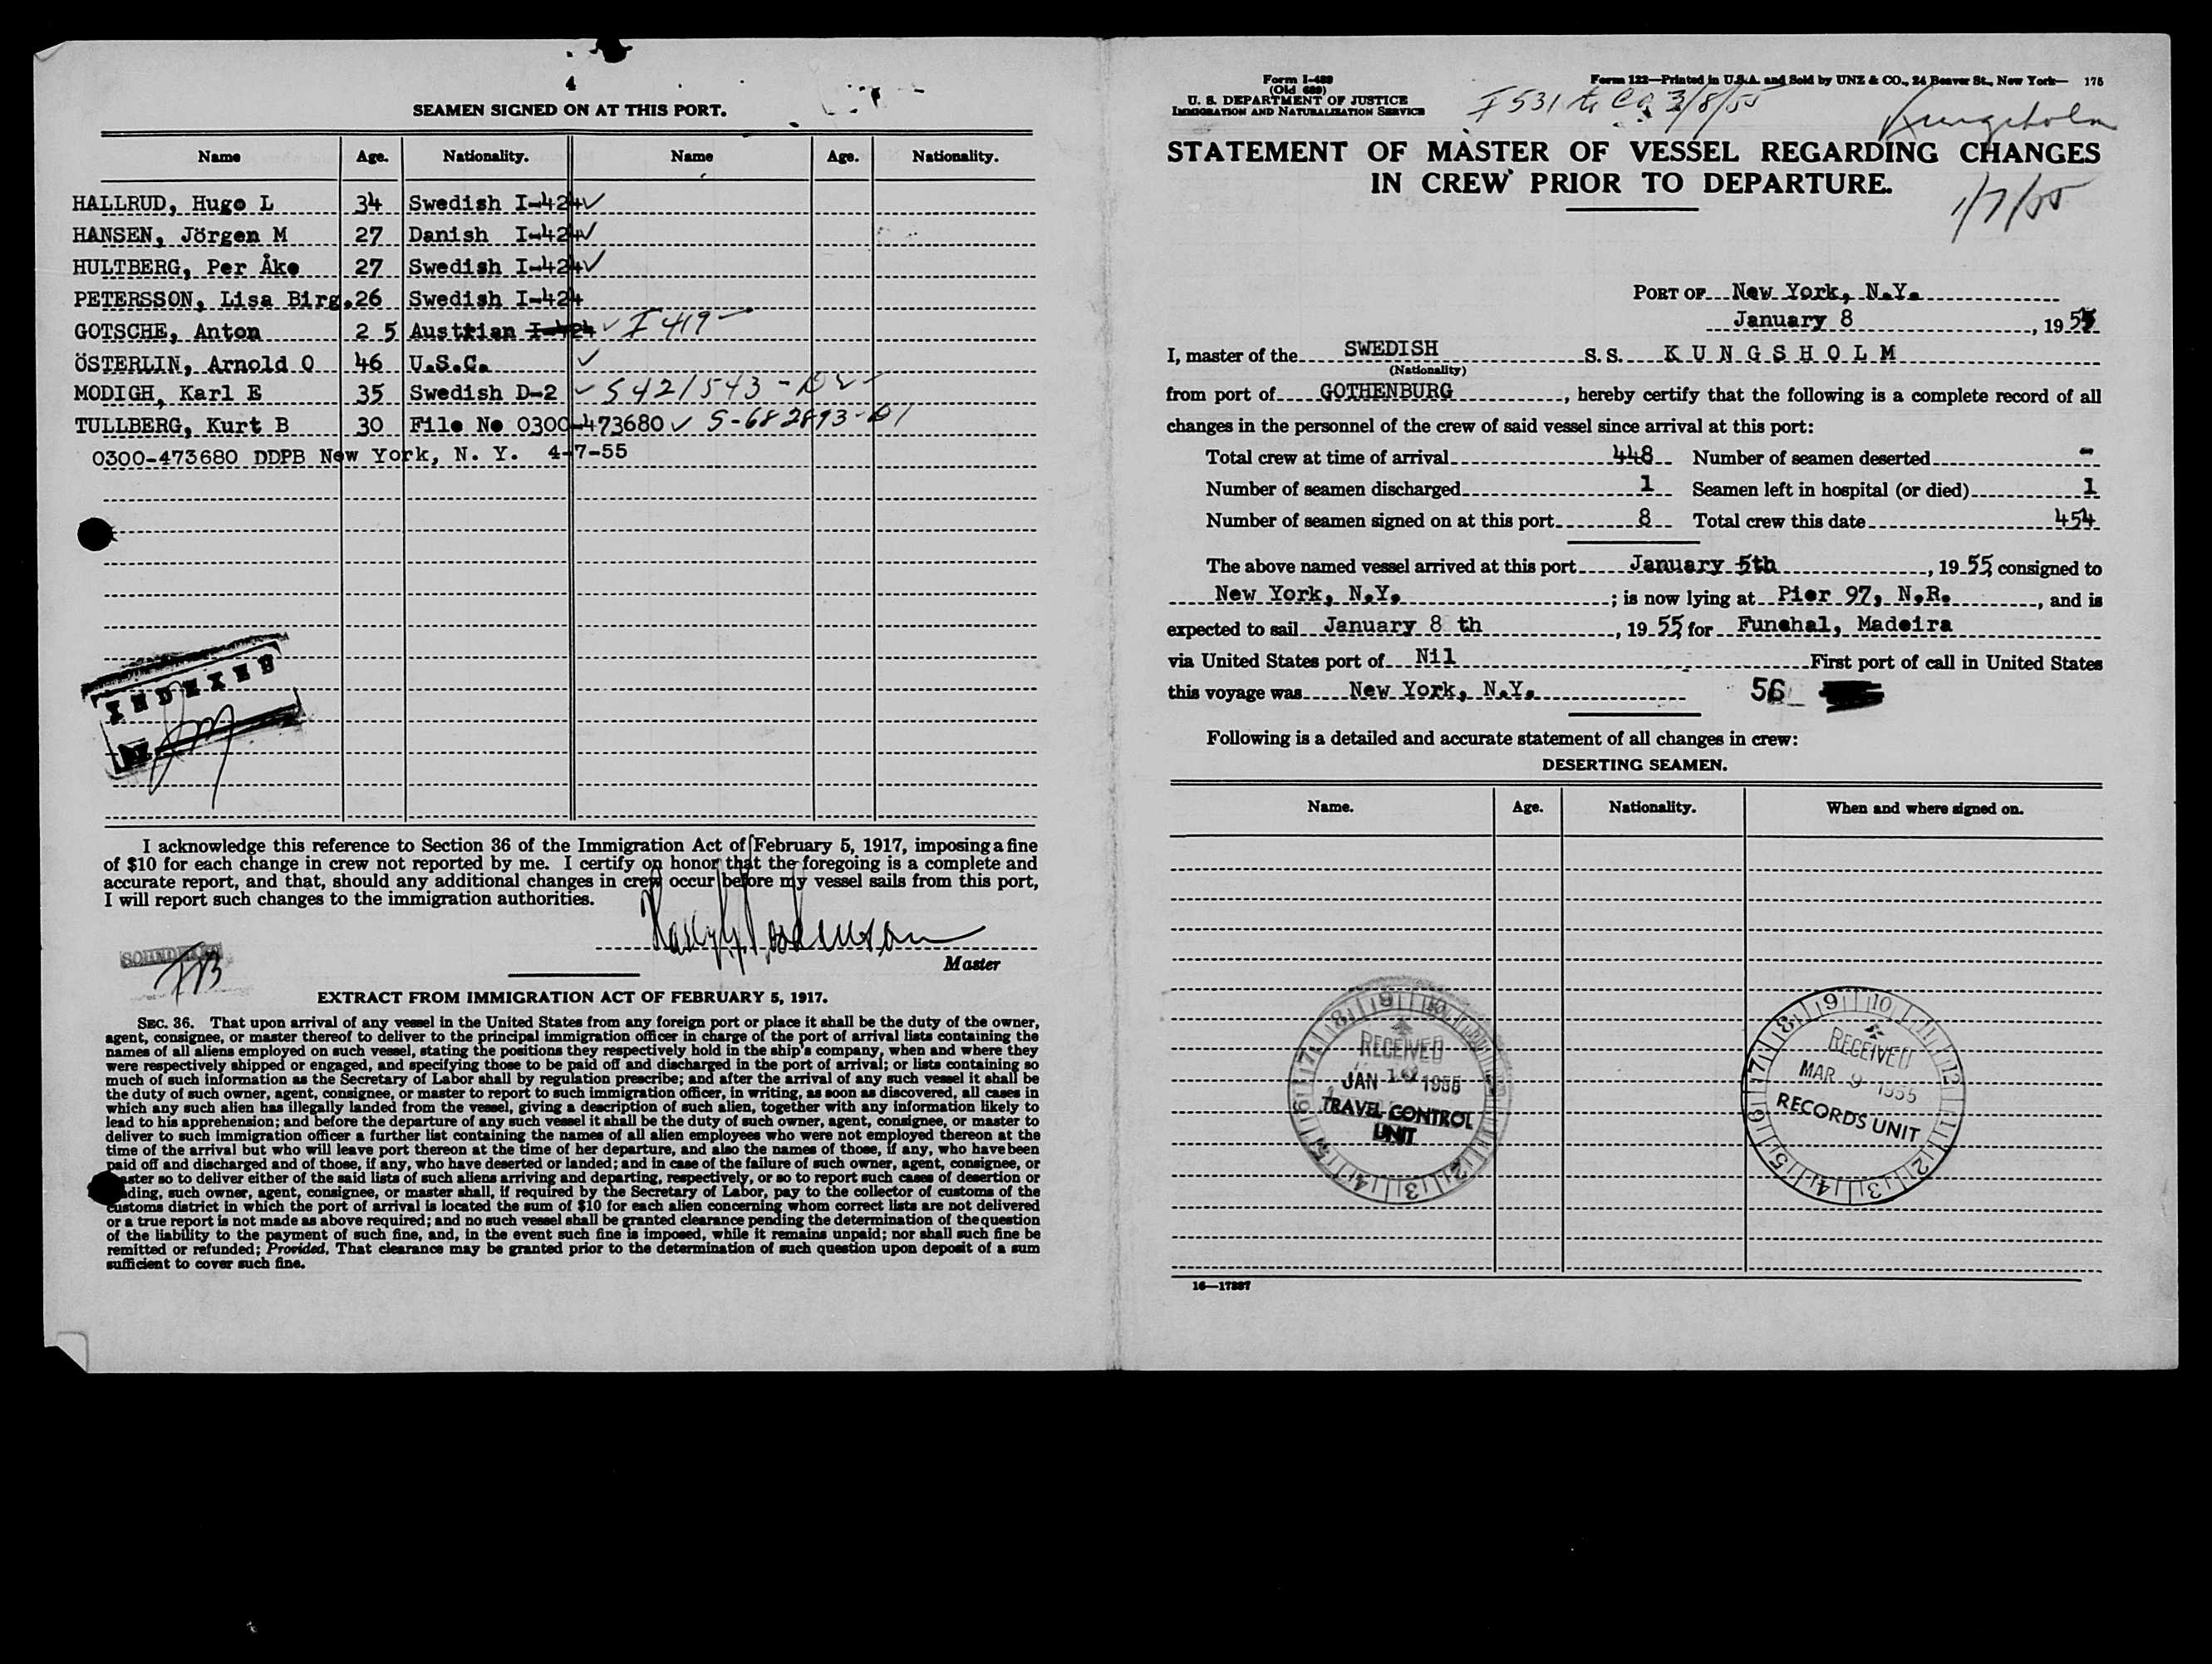 4
SEAMEN SIGNED ON AT THIS PORT.
Name Age. Nationality. Name Age. Nationality.
HALLRUD, Hugo L 34 Swedish I-424 ✓
HANSEN, Jörgen M 27 Danish I-424 ✓
HULTBERG, Per Åke 27 Swedish I-424 ✓
PETERSSON, Lisa Birg. 26 Swedish I-424
GOTSCHE, Anton 2 5 Austrian I-424 ✓ I 419
ÖSTERLIN, Arnold O 46 U.S.C. ✓
MODIGH, Karl E 35 Swedish D-2 ✓ S421543
TULLBERG, Kurt B 30 File No 0300-473680 ✓ S-682893-D1
0300-473680 DDPB New York, N. Y. 4-7-55
INDEXED
I acknowledge this reference to Section 36 of the Immigration Act of February 5, 1917, imposing a fine
of $10 for each change in crew not reported by me. I certify on honor that the foregoing is a complete and
accurate report, and that, should any additional changes in crew occur before my vessel sails from this port,
I will report such changes to the immigration authorities.
Master
EXTRACT FROM IMMIGRATION ACT OF FEBRUARY 5, 1917.
SEC. 36. That upon arrival of any vessel in the United States from any foreign port or place it shall be the duty of the owner,
agent, consignee, or master thereof to deliver to the principal immigration officer in charge of the port of arrival lists containing the
names of all aliens employed on such vessel, stating the positions they respectively hold in the ship's company, when and where they
were respectively shipped or engaged, and specifying those to be paid off and discharged in the port of arrival; or lists containing so
much of such information as the Secretary of Labor shall by regulation prescribe; and after the arrival of any such vessel it shall be
the duty of such owner, agent, consignee, or master to report to such immigration officer, in writing, as soon as discovered, all cases in
which any such alien has illegally landed from the vessel, giving a description of such alien, together with any information likely to
lead to his apprehension; and before the departure of any such vessel it shall be the duty of such owner, agent, consignee, or master to
deliver to such immigration officer a further list containing the names of all alien employees who were not employed thereon at the
time of the arrival but who will leave port thereon at the time of her departure, and also the names of those, if any, who have been
paid off and discharged and of those, if any, who have deserted or landed; and in case of the failure of such owner, agent, consignee, or
master so to deliver either of the said lists of such aliens arriving and departing, respectively, or so to report such cases of desertion or
landing, such owner, agent, consignee, or master shall, if required by the Secretary of Labor, pay to the collector of customs of the
customs district in which the port of arrival is located the sum of $10 for each alien concerning whom correct lists are not delivered
or a true report is not made as above required; and no such vessel shall be granted clearance pending the determination of the question
of the liability to the payment of such fine, and, in the event such fine is imposed, while it remains unpaid; nor shall such fine be
remitted or refunded; Provided, That clearance may be granted prior to the determination of such question upon deposit of a sum
sufficient to cover such fine.
Form I-489
(Old 689)
U. S. DEPARTMENT OF JUSTICE
IMMIGRATION AND NATURALIZATION SERVICE
Form 122—Printed in U.S.A. and Sold by UNZ & CO., 24 Beaver St., New York— 175
I 531 to CO 3/8/55
Kungsholm
STATEMENT OF MASTER OF VESSEL REGARDING CHANGES
IN CREW PRIOR TO DEPARTURE.
1/7/55
PORT OF New York, N.Y.
January 8, 1955
I, master of the SWEDISH S. S. K U N G S H O L M
(Nationality)
from port of GOTHENBURG, hereby certify that the following is a complete record of all
changes in the personnel of the crew of said vessel since arrival at this port:
Total crew at time of arrival 448 Number of seamen deserted -
Number of seamen discharged 1 Seamen left in hospital (or died) 1
Number of seamen signed on at this port 8 Total crew this date 454
The above named vessel arrived at this port January 5th, 1955 consigned to
New York, N.Y.; is now lying at Pier 97, N.R., and is
expected to sail January 8 th, 1955 for Funchal, Madeira
via United States port of Nil First port of call in United States
this voyage was New York, N.Y. 56
Following is a detailed and accurate statement of all changes in crew:
DESERTING SEAMEN.
Name. Age. Nationality. When and where signed on.
RECEIVED
JAN 10 1955
TRAVEL CONTROL
UNIT
RECEIVED
MAR 9 1955
RECORDS UNIT
16—17887